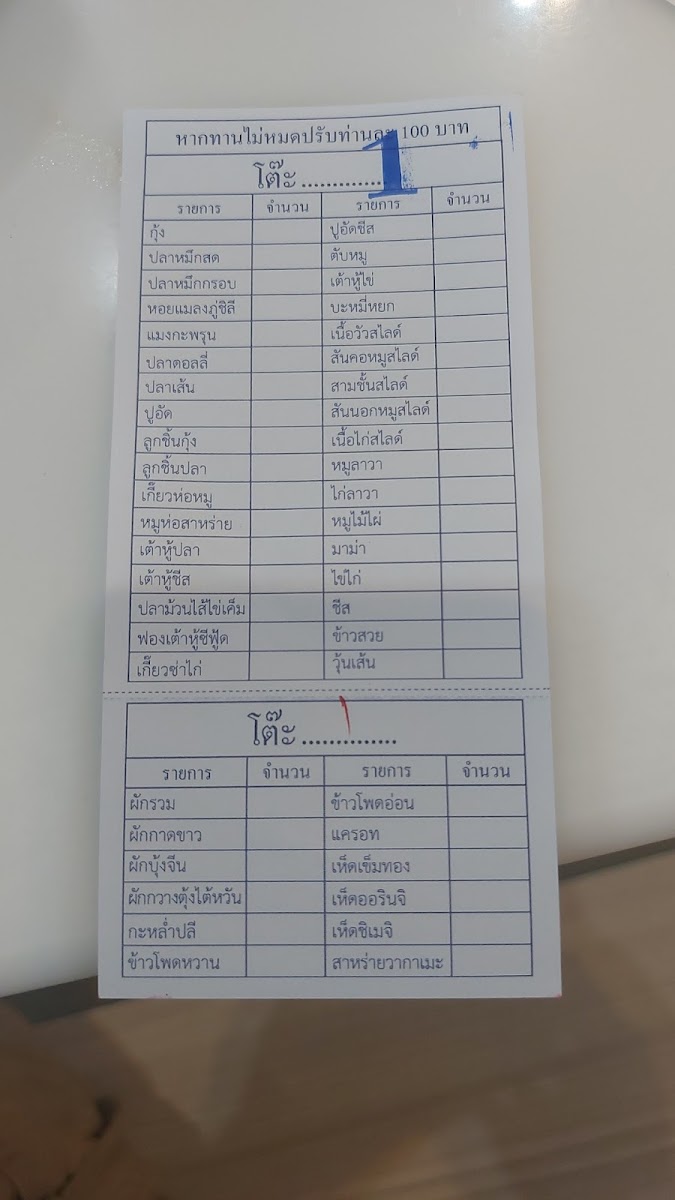 หากทานไม่หมดปรับท่านละ 100 บาท
โต๊ะ .............. 1
รายการ จำนวน รายการ จำนวน
กุ้ง ปูอัดชีส
ปลาหมึกสด ตับหมู
ปลาหมึกกรอบ เต้าหู้ไข่
หอยแมลงภู่ชิลี บะหมี่หยก
แมงกะพรุน เนื้อวัวสไลด์
ปลาดอลลี่ สันคอหมูสไลด์
ปลาเส้น สามชั้นสไลด์
ปูอัด สันนอกหมูสไลด์
ลูกชิ้นกุ้ง เนื้อไก่สไลด์
ลูกชิ้นปลา หมูลาวา
เกี๊ยวห่อหมู ไก่ลาวา
หมูห่อสาหร่าย หมูไม้ไผ่
เต้าหู้ปลา มาม่า
เต้าหู้ชีส ไข่ไก่
ปลาม้วนไส้ไข่เค็ม ชีส
ฟองเต้าหู้ซีฟู้ด ข้าวสวย
เกี๊ยวซ่าไก่ วุ้นเส้น
โต๊ะ .............. 1
รายการ จำนวน รายการ จำนวน
ผักรวม ข้าวโพดอ่อน
ผักกาดขาว แครอท
ผักบุ้งจีน เห็ดเข็มทอง
ผักกวางตุ้งไต้หวัน เห็ดออรินจิ
กะหล่ำปลี เห็ดชิเมจิ
ข้าวโพดหวาน สาหร่ายวากาเมะ